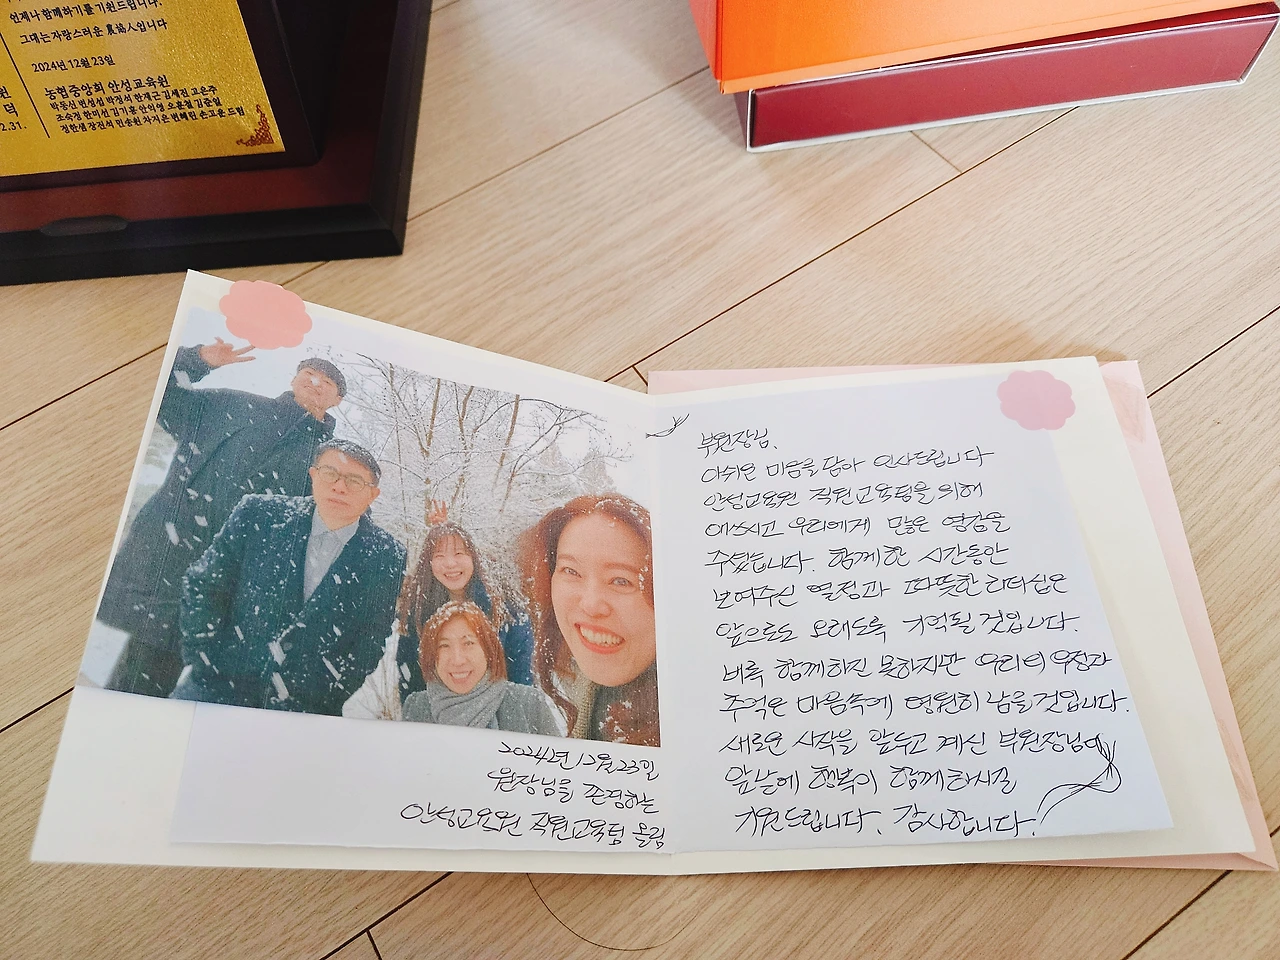 언제나 함께하기를 기원드립니다.
그대는 자랑스러운 農協人입니다
2024년 12월 23일
농협중앙회 안성교육원
박동신 변성섭 박정석 한재근 김세진 고은주
조숙정 한미선 김기홍 안의영 오훈철 김준일
정한샘 장진석 민송원 차지은 변혜린 손고운 드림
원
덕
2.31.
부원장님,
아쉬운 마음을 담아 인사드립니다
안성교육원 직원교육팀을 위해
애쓰시고 우리에게 많은 영감을
주셨습니다. 함께한 시간동안
보여주신 열정과 따뜻한 리더십은
앞으로도 오래도록 기억될 것입니다.
비록 함께하진 못하지만 우리의 우정과
추억은 마음속에 영원히 남을 것입니다.
새로운 시작을 앞두고 계신 부원장님에
앞날에 행복이 함께하시길
기원드립니다. 감사합니다.
2024년 12월 23일
원장님을 존경하는
안성교육원 직원교육팀 올림